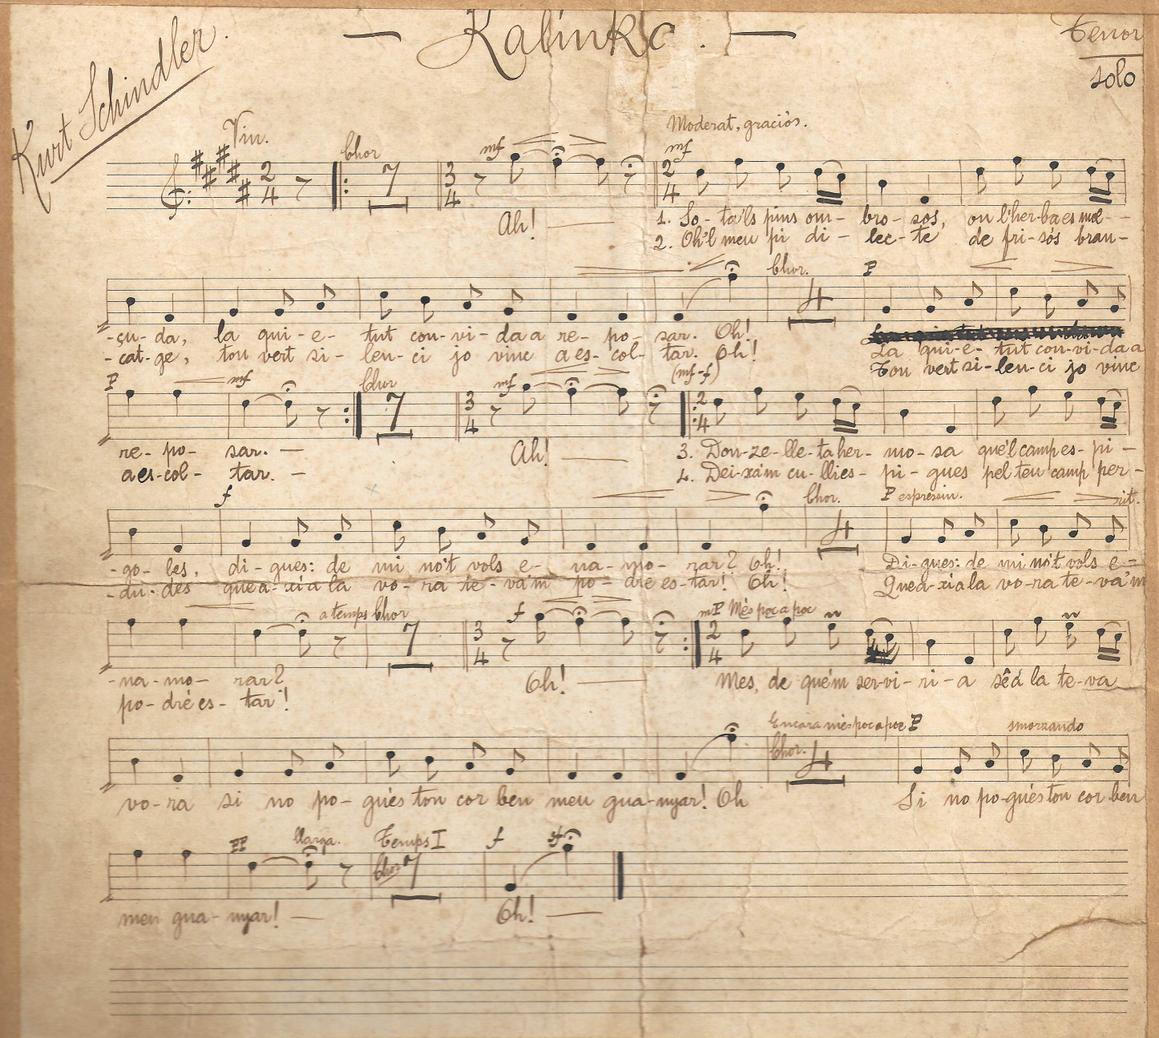 — Kalinka. —
Tenor
solo
Kurt Schindler.
Viu.
Chor
mf
Moderat, graciós.
mf
2
4
7
3
4
2
4
Ah! —
1. So-ta'ls pins om- bro-sos, on l'her-ba es mol-
2. Oh'l meu pi di- lec-te de fri-sós bran-
Chor.
P
4
-su-da, la qui-e- tut con-vi-da a re-po- sar. Oh!
-cat-ge, tou vert si- len-ci jo vinc a es-col- tar. Oh!
La qui-e-tut con-vi-da a
Tou vert si-len-ci jo vinc
P
mf
Chor
mf
(mf-f)
7
3
4
2
4
re-po- sar. —
a es-col- tar. —
Ah! —
3. Don-ze-lle-ta her- mo-sa que'l camp es-pi-
4. Dei-xa'm cu-lli es- pi-gues pel teu camp per-
f
Chor.
P espressiu.
rit.
4
-go-les, di-gues: de mi no't vols e- na-mo- rar? Oh!
-du-des que a-xí a la vo-ra te-va'm po-dré es-tar! Oh!
Di-gues: de mi no't vols e-
Que a-xí a la vo-ra te-va'm
a temps
Chor
f
mP Més poc a poc
7
3
4
2
4
-na-mo- rar?
po-dré es- tar!
Oh! —
Mes, de que'm ser-vi-ri-a sê a la te-va
Encara més poc a poc
P
smorzando
Chor.
4
vo-ra si no po-gués ton cor ben meu gua-nyar! Oh
Si no po-gués ton cor ben
PP
llarga.
Temps I
f
Chor
7
meu gua-nyar! —
Oh! —